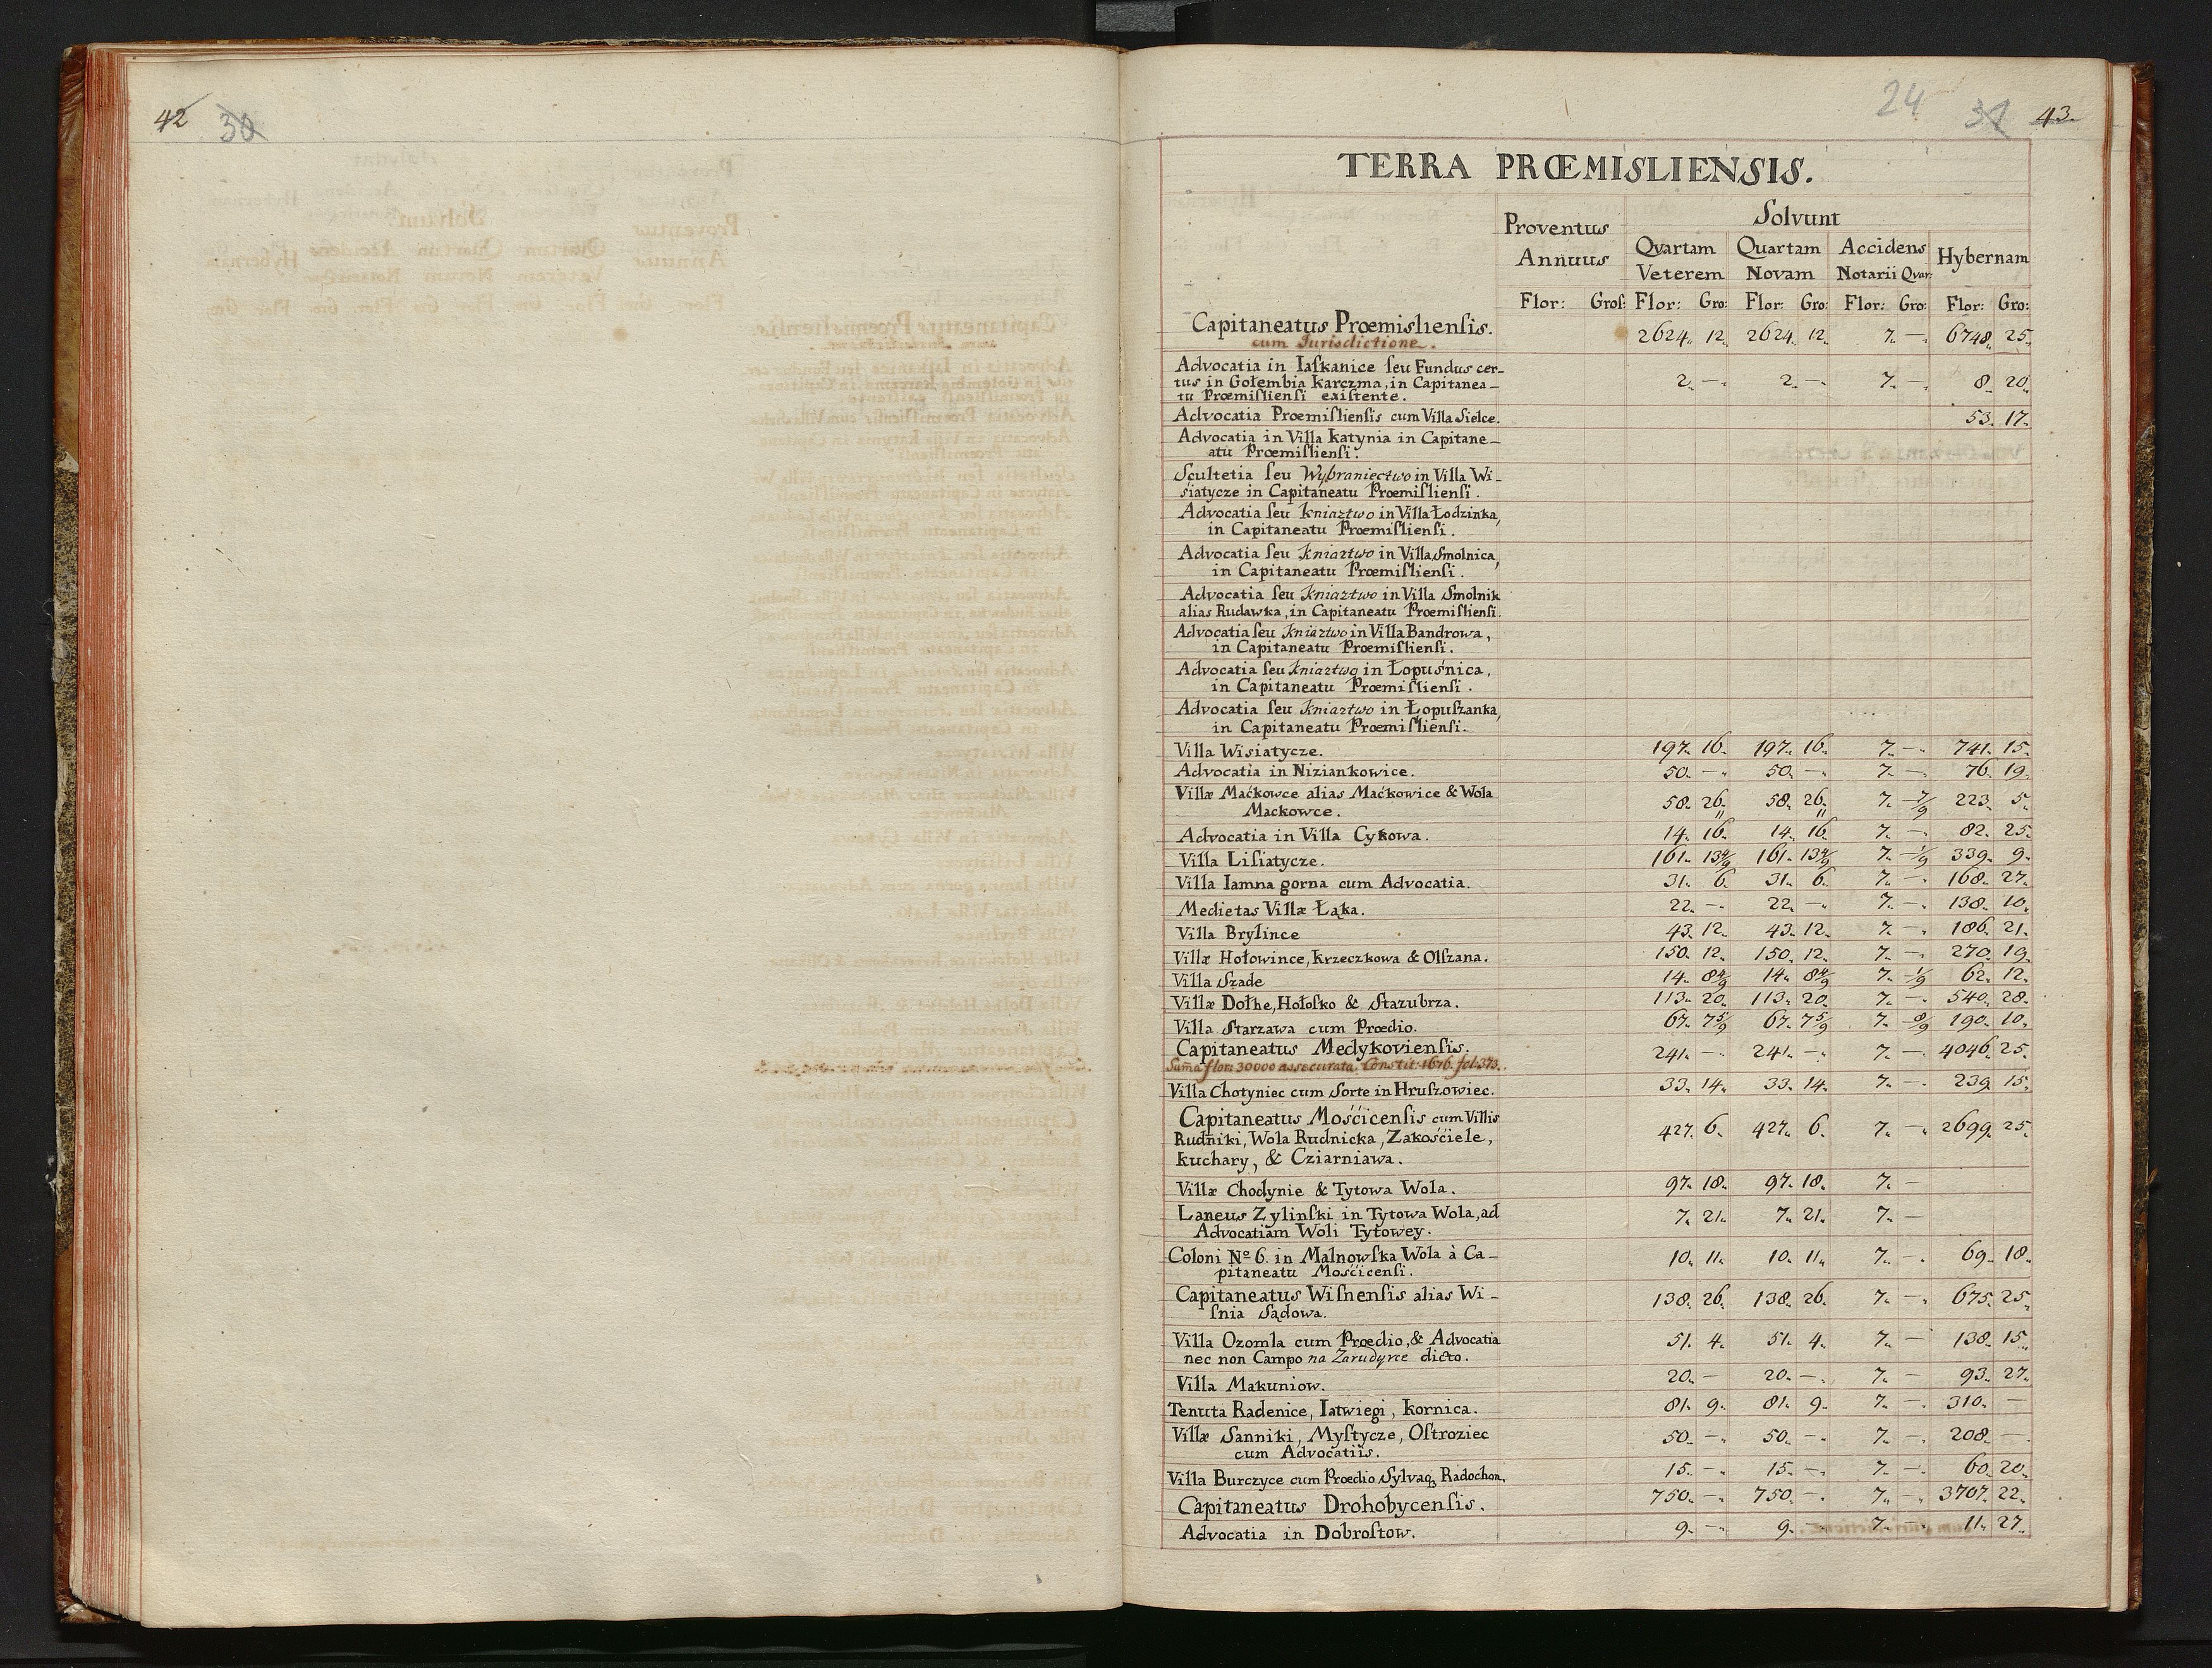 42 30
24 31 43.
TERRA PRŒMISLIENSIS.
Proventus Annuus
Solvunt
Qvartam Veterem
Quartam Novam
Accidens Notarii Qvar:
Hybernam
Flor: Groſ: Flor: Gro: Flor: Gro: Flor: Gro: Flor: Gro:
Capitaneatus Prœmislienſis. 2624. 12. 2624. 12. 7. —. 6748. 25.
cum Jurisdictione.
Advocatia in Iaſkanice ſeu Fundus cer-
tus in Gołembia Karczma, in Capitanea- 2. —. 2. —. 7. —. 8. 20.
tu Prœmiſlienſi exiſtente.
Advocatia Prœmiſlienſis cum Villa Sielce. 53. 17.
Advocatia in Villa Katynia in Capitane-
atu Prœmiſlienſi.
Scultetia ſeu Wybraniectwo in Villa Wi-
śiatycze in Capitaneatu Prœmiſlienſi.
Advocatia ſeu Kniaztwo in Villa Łodzinka,
in Capitaneatu Prœmiſlienſi.
Advocatia ſeu Kniaztwo in Villa Smolnica,
in Capitaneatu Prœmiſlienſi.
Advocatia ſeu Kniaztwo in Villa Smolnik
alias Rudawka, in Capitaneatu Prœmiſlienſi.
Advocatia ſeu Kniaztwo in Villa Bandrowa,
in Capitaneatu Prœmiſlienſi.
Advocatia ſeu Kniaztwo in Łopuśnica,
in Capitaneatu Prœmiſlienſi.
Advocatia ſeu Kniaztwo in Łopuſzanka,
in Capitaneatu Prœmiſlienſi.
Villa Wisiatycze. 197. 16. 197. 16. 7. —. 741. 15.
Advocatia in Niziankowice. 50. —. 50. —. 7. —. 76. 19.
Villæ Maćkowce alias Maćkowice & Wola 58. 26. 58. 26. 7. 7/9 223. 5.
Mackowce.
Advocatia in Villa Cykowa. 14. 16. 14. 16. 7. —. 82. 25.
Villa Liſiatycze. 161. 13 4/9 161. 13 4/9 7. 1/9 339. 9.
Villa Iamna gorna cum Advocatia. 31. 6. 31. 6. 7. —. 168. 27.
Medietas Villæ Łąka. 22. —. 22. —. 7. —. 138. 10.
Villa Brylince 43. 12. 43. 12. 7. —. 186. 21.
Villæ Hołowince, Krzeczkowa & Olſzana. 150. 12. 150. 12. 7. —. 270. 19.
Villa Szade 14. 8 4/9 14. 8 4/9 7. 1/9 62. 12.
Villæ Dołhe, Hołoſko & Stazubrza. 113. 20. 113. 20. 7. —. 540. 28.
Villa Starzawa cum Prœdio. 67. 7 5/9 67. 7 5/9 7. 8/9 190. 10.
Capitaneatus Medykovienſis. 241. —. 241. —. 7. —. 4046. 25.
Sum̄a flor: 30000 assecurata. Constit: 1676. fol. 373.
Villa Chotyniec cum Sorte in Hruſzowiec. 33. 14. 33. 14. 7. —. 239. 15.
Capitaneatus Mośćicenſis cum Villis
Rudniki, Wola Rudnicka, Zakośćiele, 427. 6. 427. 6. 7. —. 2699. 25.
Kuchary, & Cziarniawa.
Villæ Chodynie & Tytowa Wola. 97. 18. 97. 18. 7. —
Laneus Zylinſki in Tytowa Wola, ad 7. 21. 7. 21. 7. —
Advocatiam Woli Tytowey.
Coloni Nº 6. in Malnowſka Wola à Ca- 10. 11. 10. 11. 7. —. 69. 18.
pitaneatu Mośćicenſi.
Capitaneatus Wiſnenſis alias Wi- 138. 26. 138. 26. 7. —. 675. 25.
ſnia Sądowa.
Villa Ozomla cum Prœdio, & Advocatia 51. 4. 51. 4. 7. — 138. 15.
nec non Campo na Zarudyrce dicto.
Villa Makuniow. 20. — 20. —. 7. — 93. 27.
Tenuta Radenice, Iatwiegi, Kornica. 81. 9. 81. 9. 7. —. 310. —
Villæ Sanniki, Myſtycze, Oſtroziec 50. —. 50. —. 7. —. 208. —
cum Advocatiis.
Villa Burczyce cum Prœdio Sylvaq₃ Radochon. 15. —. 15. —. 7. —. 60. 20.
Capitaneatus Drohobycenſis. 750. —. 750. —. 7. —. 3707. 22.
Advocatia in Dobroſtow. 9. —. 9. —. 7. —. 11. 27.